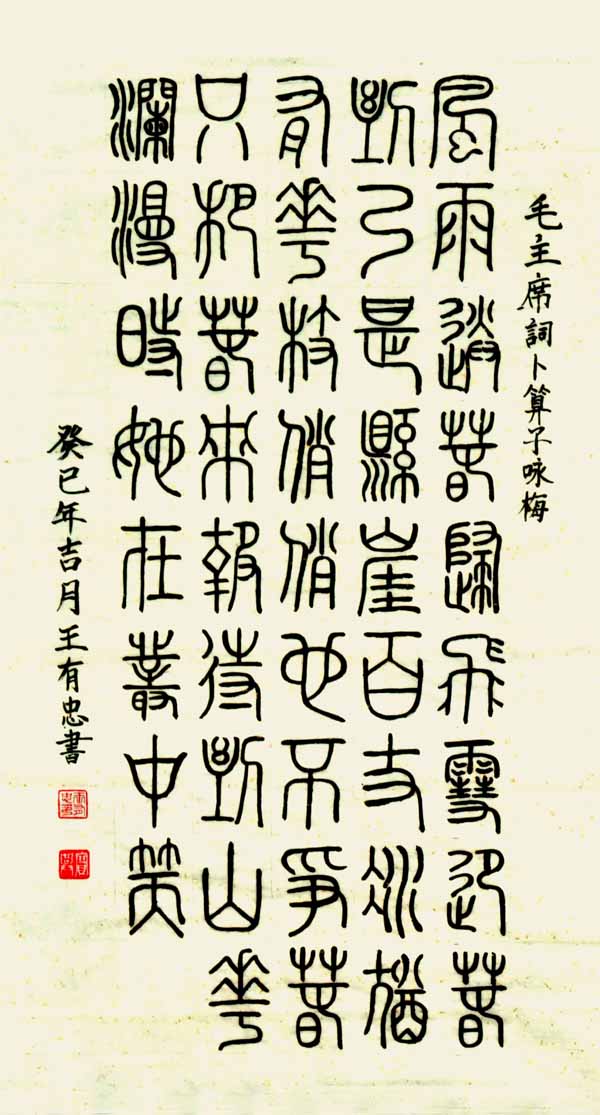 毛主席詞卜算子咏梅
風雨送春歸飛雪迎春
到已是縣崖百丈冰猶
有花枝俏俏也不爭春
只把春來報待到山花
瀾漫時她在叢中笑
癸巳年吉月王有忠書